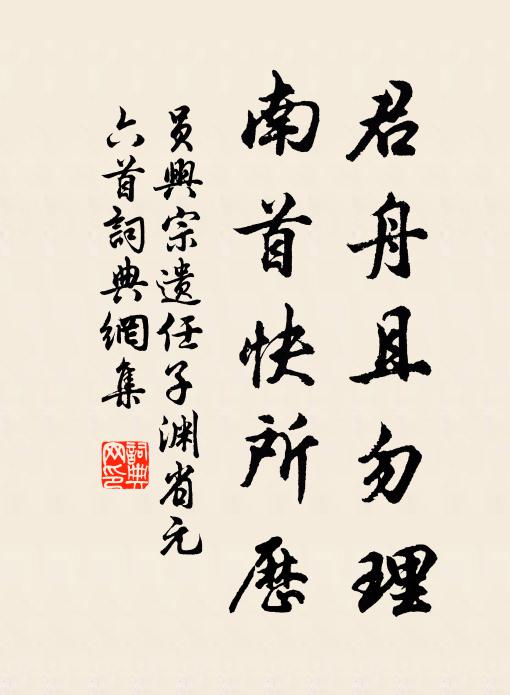 君舟且勿理
南首快所歷
員興宗遺任子渊省元
六首詞典網集
詞典網印